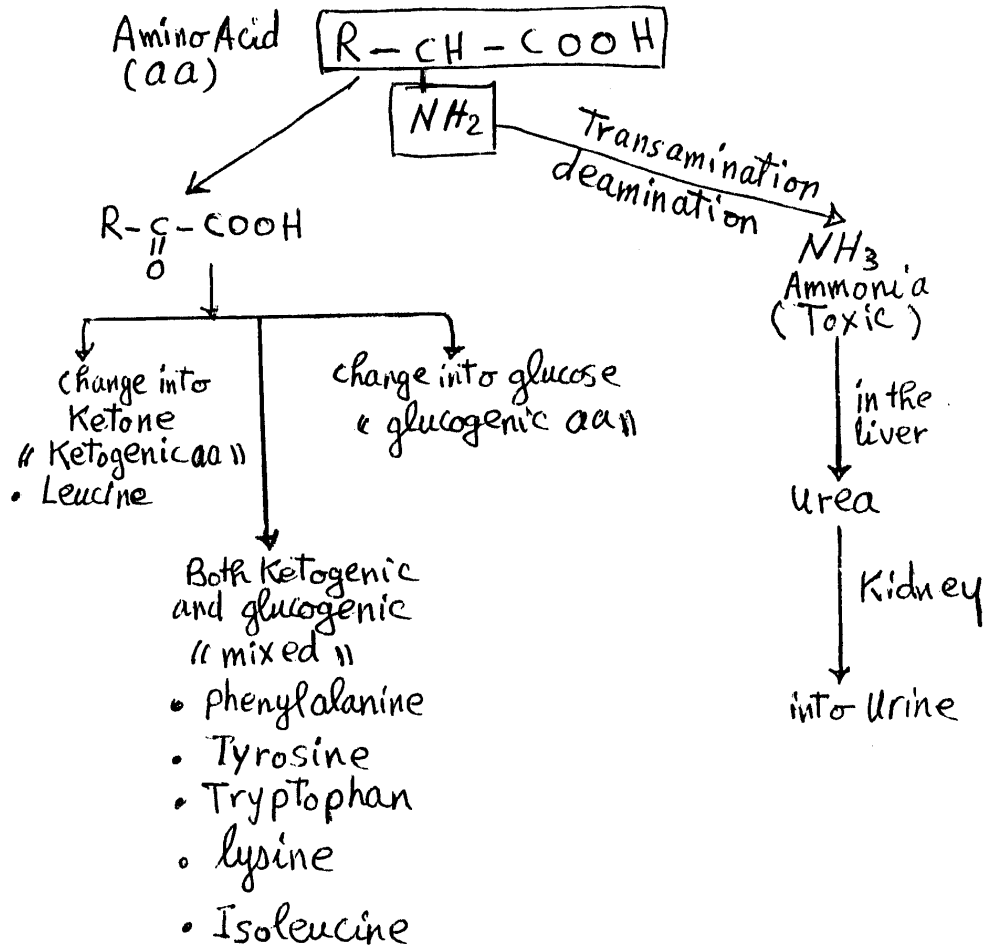 Amino Acid
(aa)
R - CH - COOH
NH2
Transamination
deamination
R - C - COOH
O
NH3
Ammonia
(Toxic)
in the
liver
urea
Kidney
into urine
change into
Ketone
"Ketogenic aa"
• Leucine
change into glucose
"glucogenic aa"
Both Ketogenic
and glucogenic
"mixed"
• phenylalanine
• Tyrosine
• Tryptophan
• lysine
• Isoleucine